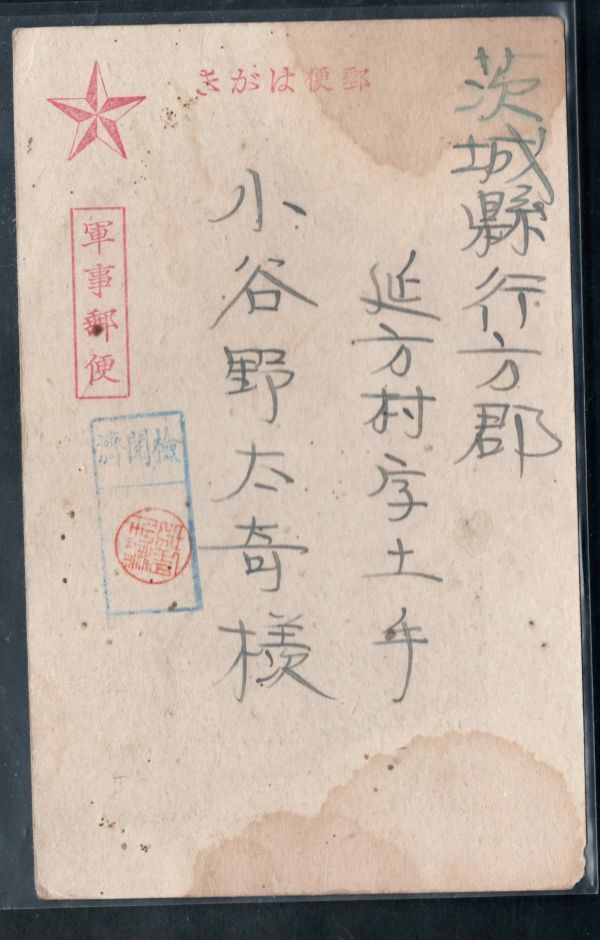 郵便はがき
茨城縣行方郡
延方村字土手
小谷野太奇様
軍事郵便
檢閲濟